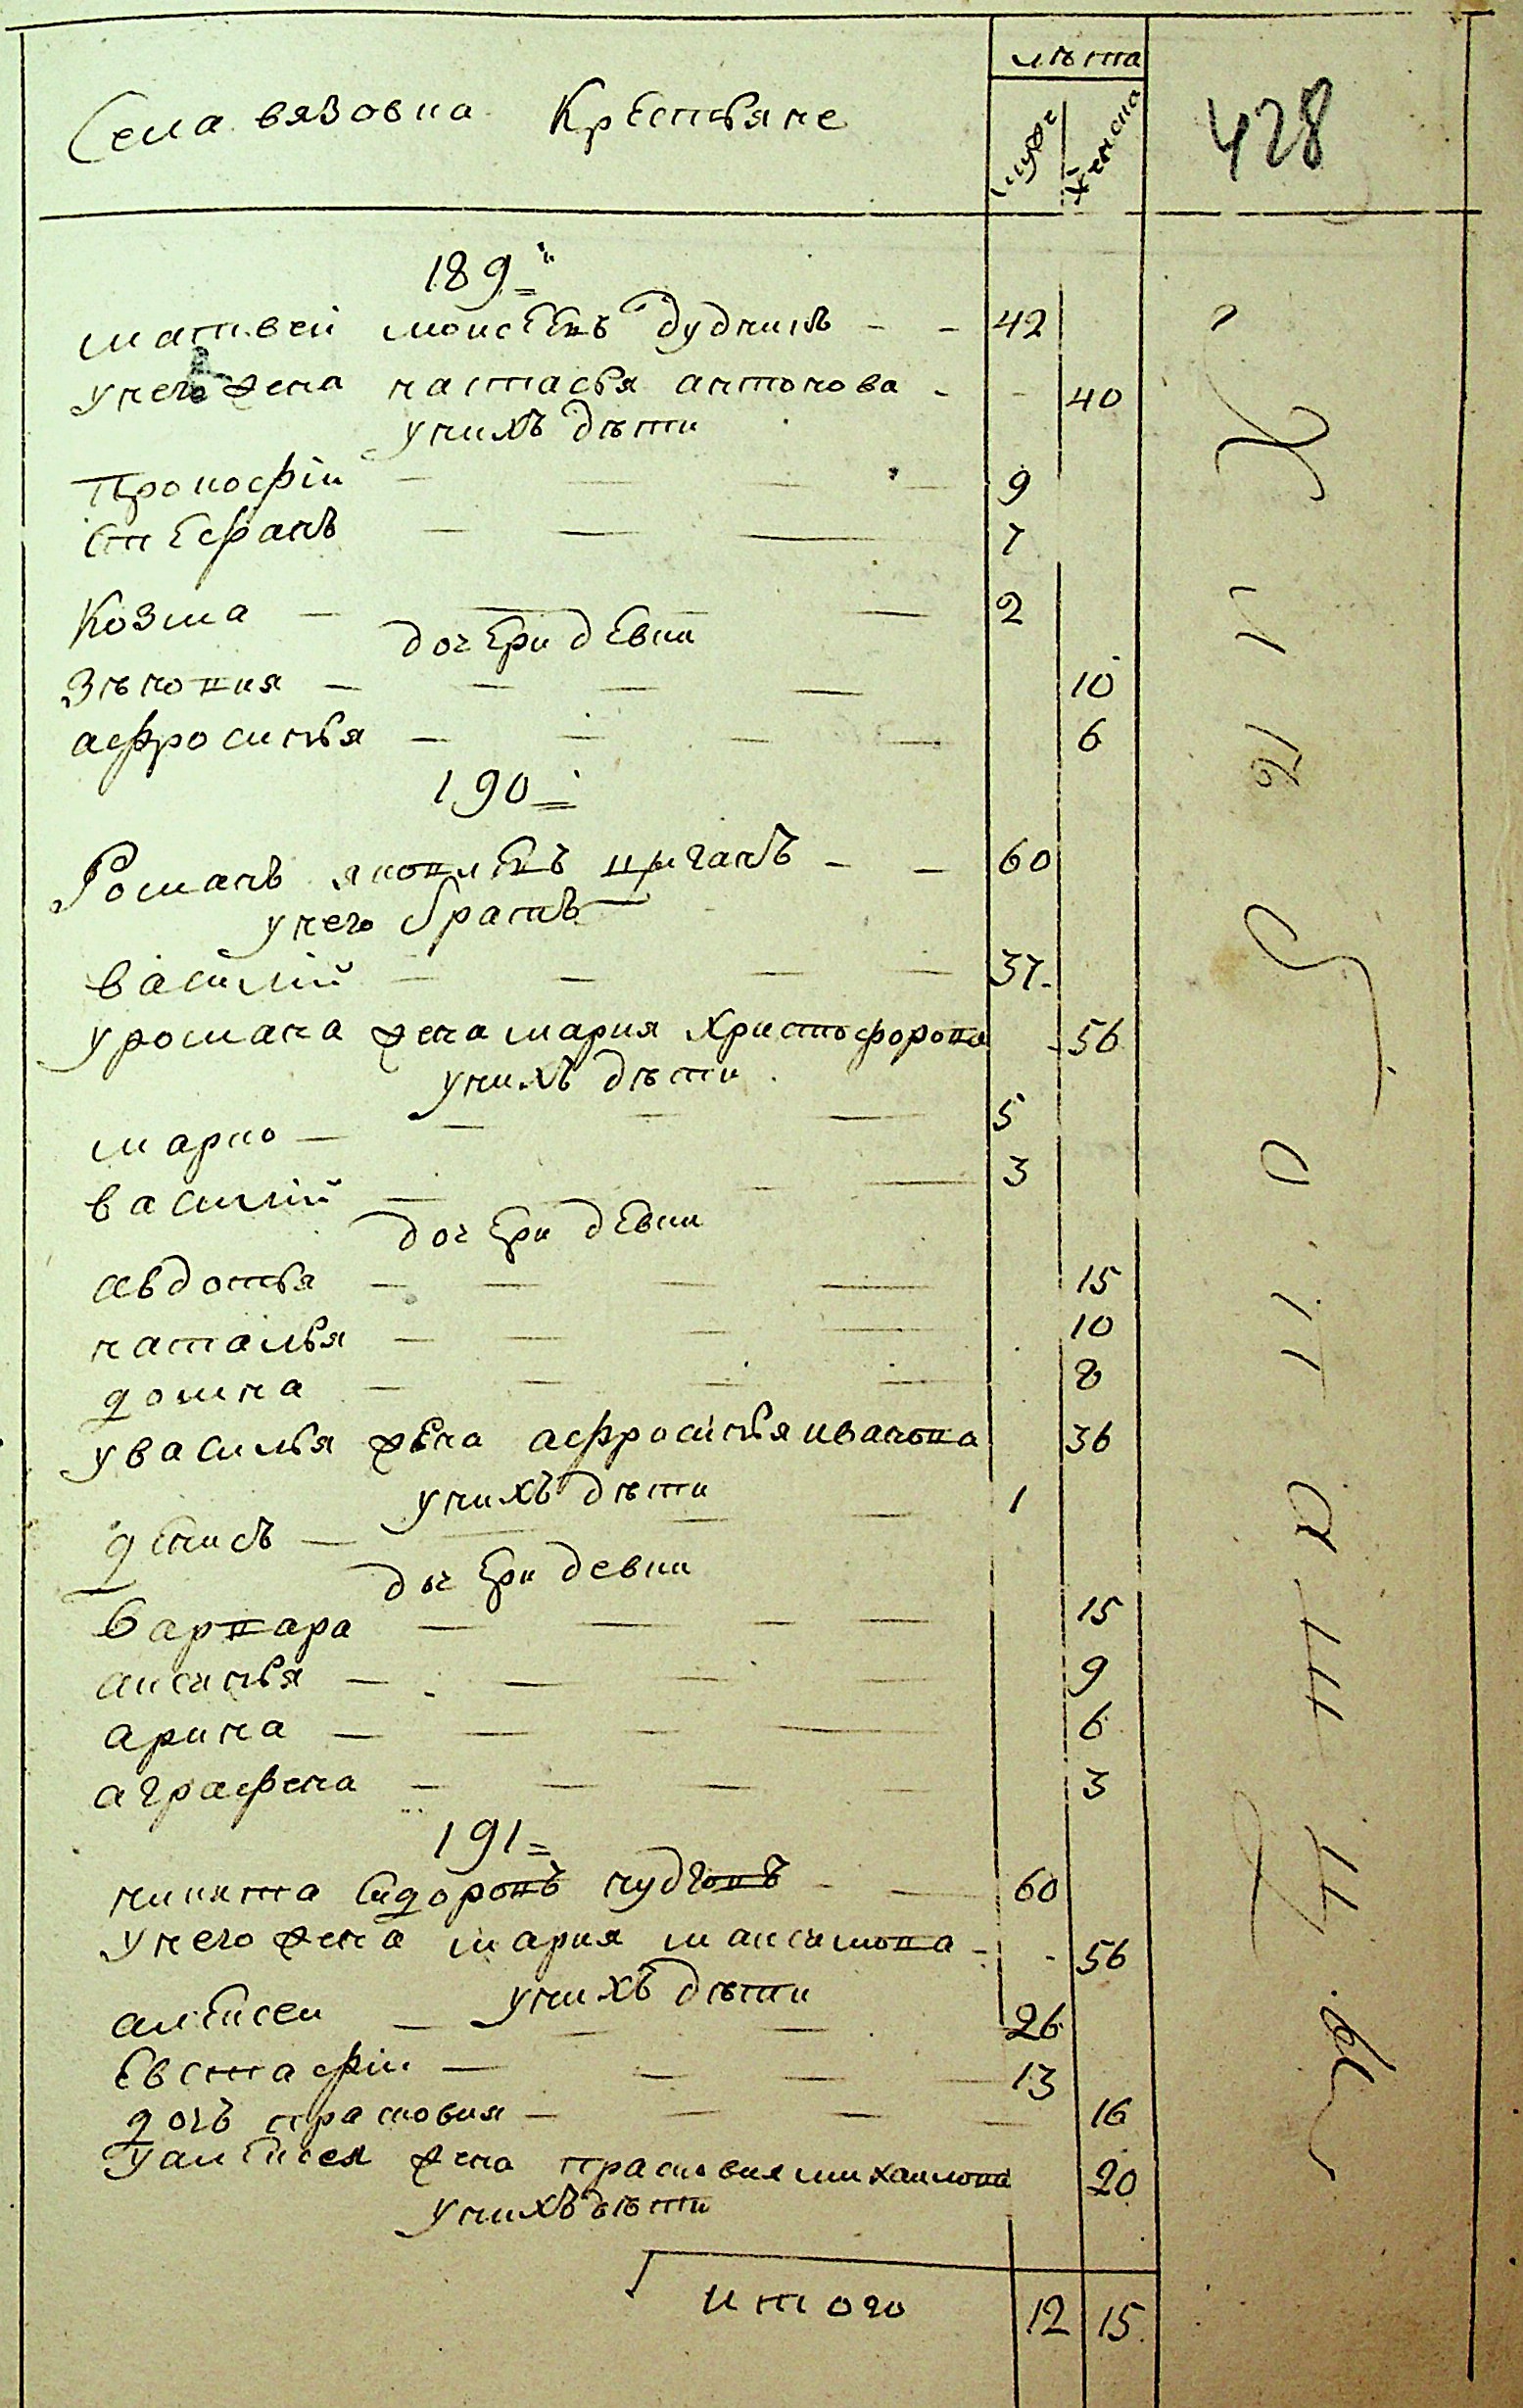 лѣта
Села вязовка Крестьяне
муж
женска
428
189
матвей моисеевъ дудникъ 42
у него жена настасья антонова 40
у них дѣти
Прокофій 9
Стефанъ 7
Козма 2
дочери девки
Зѣновия 10
афросинья 6
190
Романъ яковлевъ цыганъ 60
у него братъ
василій 37
у романа жена мария Христофорова 56
у нихъ дѣти
марко 5
василій 3
дочери девки
авдотья 15
наталья 10
домна 8
у василья жена афросинья иванова 36
у нихъ дѣти
денисъ 1
дочери девки
варвара 15
аксинья 9
арина 6
аграфена 3
191
никита сидоровъ 60
у него жена мария максимова 56
у нихъ дѣти
алексеи 26
Евстафіи 13
дочь прасковия 16
у алексея жена прасковия михаилова 20
у нихъ дѣти
итого 12 15